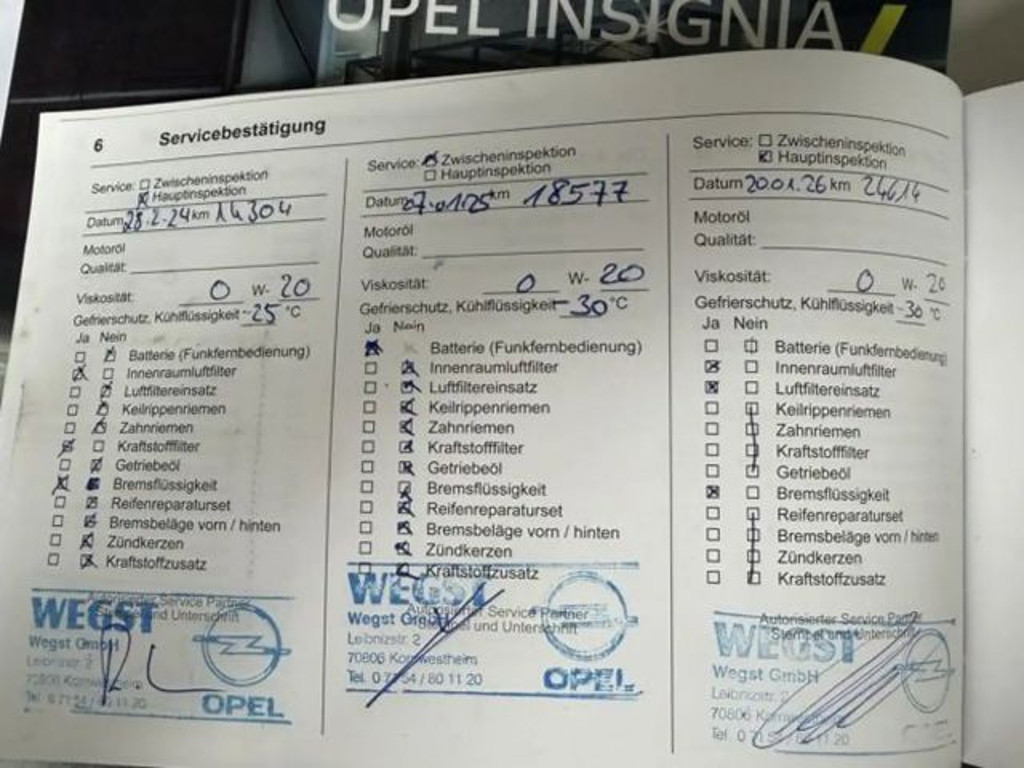 OPEL INSIGNIA
6 Servicebestätigung
Service: Zwischeninspektion
Hauptinspektion
Datum 28.2.24 km 14304
Motoröl
Qualität:
Viskosität: 0 W- 20
Gefrierschutz, Kühlflüssigkeit -25 °C
Ja Nein
Batterie (Funkfernbedienung)
Innenraumluftfilter
Luftfiltereinsatz
Keilrippenriemen
Zahnriemen
Kraftstofffilter
Getriebeöl
Bremsflüssigkeit
Reifenreparaturset
Bremsbeläge vorn / hinten
Zündkerzen
Kraftstoffzusatz
Autorisierter Service Partner
WEGST
Wegst GmbH
Leibnizstr. 2
70806 Kornwestheim
Tel. 0 71 54 / 80 11 20
OPEL
Service: Zwischeninspektion
Hauptinspektion
Datum 07.01.25 km 18577
Motoröl
Qualität:
Viskosität: 0 W- 20
Gefrierschutz, Kühlflüssigkeit -30 °C
Ja Nein
Batterie (Funkfernbedienung)
Innenraumluftfilter
Luftfiltereinsatz
Keilrippenriemen
Zahnriemen
Kraftstofffilter
Getriebeöl
Bremsflüssigkeit
Reifenreparaturset
Bremsbeläge vorn / hinten
Zündkerzen
Kraftstoffzusatz
WEGST
Autorisierter Service Partner
Wegst GmbH Stempel und Unterschrift
Leibnizstr. 2
70806 Kornwestheim
Tel. 0 71 54 / 80 11 20
OPEL
Service: Zwischeninspektion
Hauptinspektion
Datum 20.01.26 km 24614
Motoröl
Qualität:
Viskosität: 0 W- 20
Gefrierschutz, Kühlflüssigkeit -30 °C
Ja Nein
Batterie (Funkfernbedienung)
Innenraumluftfilter
Luftfiltereinsatz
Keilrippenriemen
Zahnriemen
Kraftstofffilter
Getriebeöl
Bremsflüssigkeit
Reifenreparaturset
Bremsbeläge vorn / hinten
Zündkerzen
Kraftstoffzusatz
Autorisierter Service Partner
Stempel und Unterschrift
WEGST
Wegst GmbH
Leibnizstr. 2
70806 Kornwestheim
Tel. 0 71 54 / 80 11 20